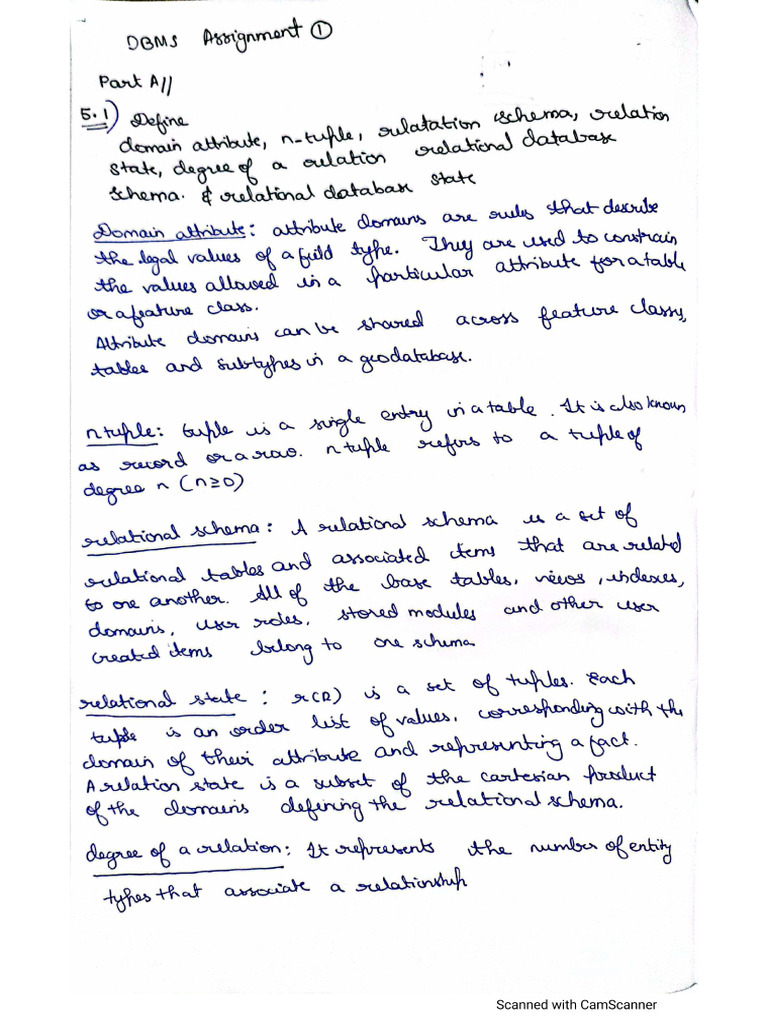 DBMS Assignment ①
Part A//
5.1) Define
domain attribute, n-tuple, rulatation schema, relation
state, degree of a relation relational database
schema. & relational database state
Domain attribute: attribute domains are rules that describe
the legal values of a field type. They are used to constrain
the values allowed in a particular attribute for a table
or a feature class.
Attribute domains can be shared across feature classy,
tables and subtypes in a geodatabase.
n tuple: tuple is a single entry in a table. It is also known
as record or a rao. n tuple refers to a tuple of
degree n (n≥0)
relational schema: A relational schema is a set of
relational tables and associated items that are related
to one another. All of the base tables, views, indexes,
domains, user roles, stored modules and other user
created items belong to one schema
relational state: r(R) is a set of tuples. Each
tuple is an order list of values, corresponding with the
domain of their attribute and representing a fact.
A relation state is a subset of the cartesian product
of the domains defining the relational schema.
degree of a relation: It represents the number of entity
types that associate a relationship
Scanned with CamScanner